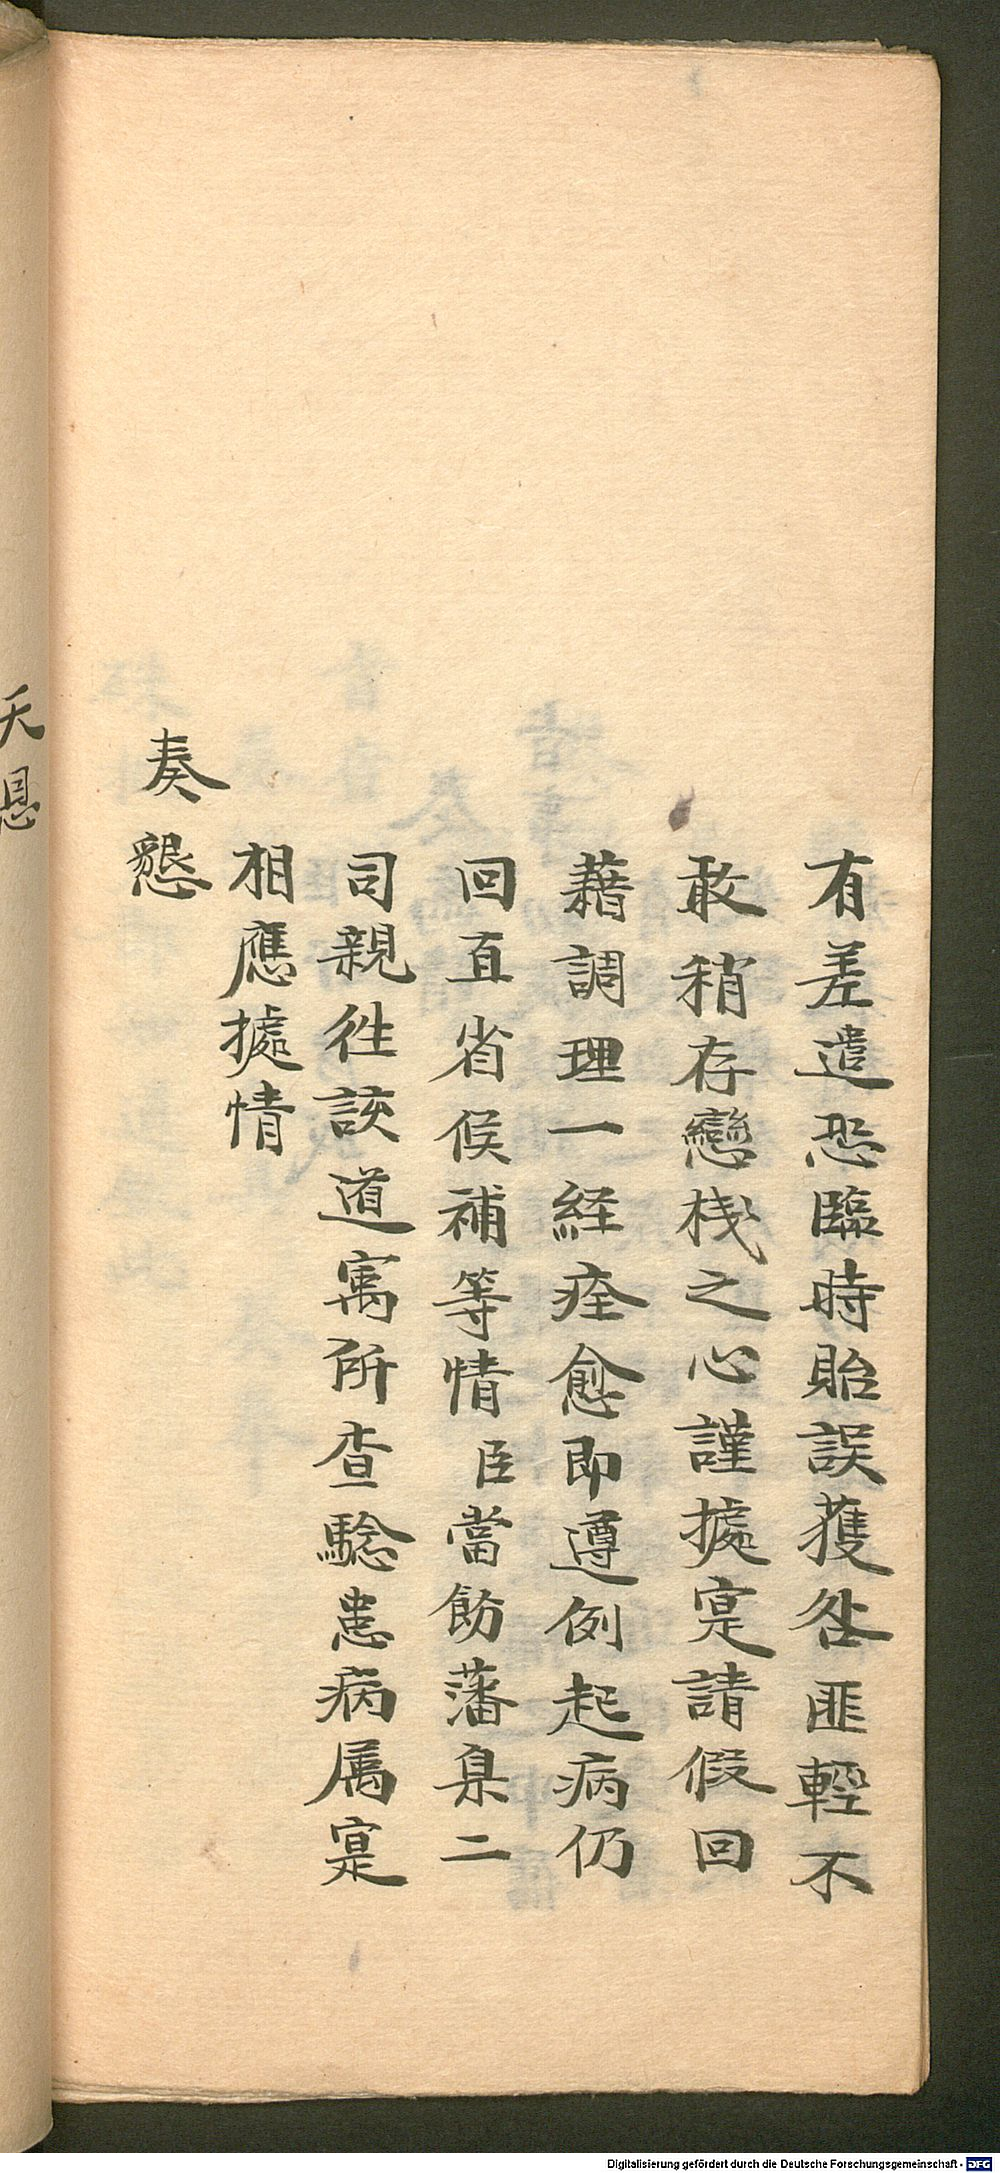 有差遣恐臨時貽誤獲咎匪輕不
敢稍存戀棧之心謹據寔請假回
藉調理一経痊愈即遵例起病仍
回直省候補等情臣當飭藩臬二
司親徃該道寓所查騐患病属寔
相應據情
奏懇
天恩
Digitalisierung gefördert durch die Deutsche Forschungsgemeinschaft - DFG